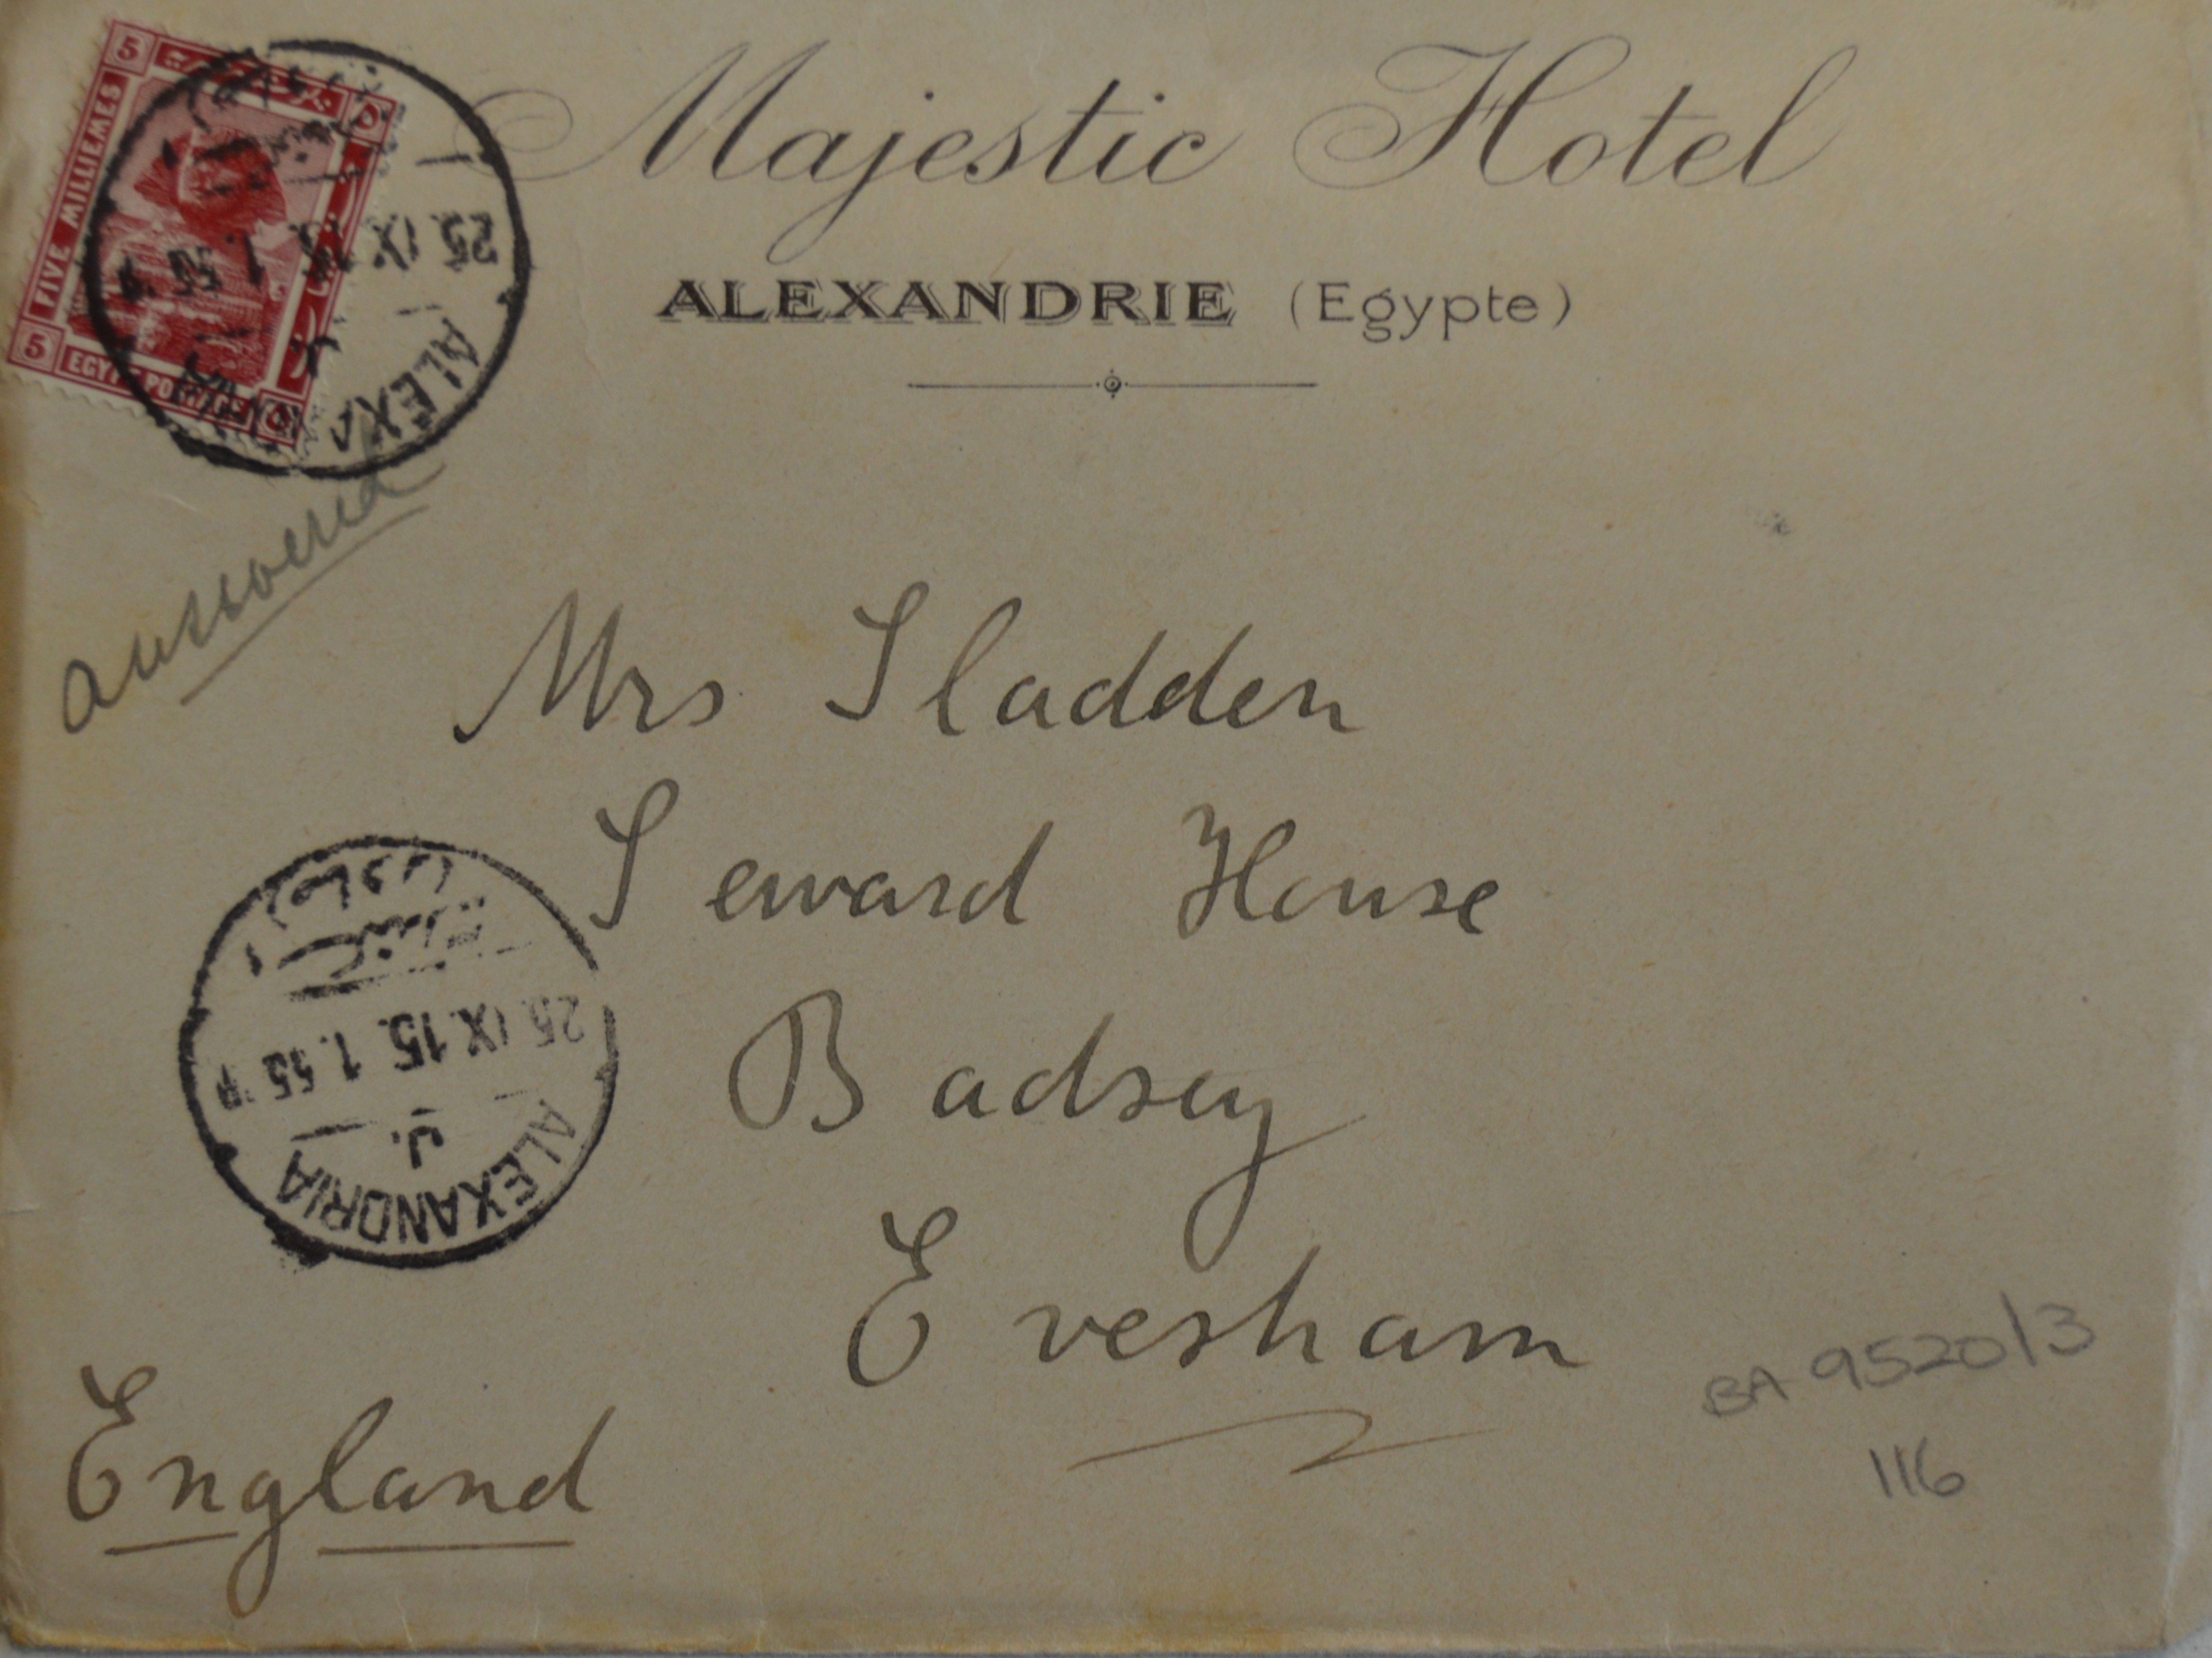 5
FIVE MILLIEMES
5
EGYPT POSTAGE
٥
Majestic Hotel
ALEXANDRIE (Egypte)
25.IX.15. 1.55 P
ALEXA
answered
Mrs Sladden
Seward House
Badsey
Evesham
England
25.IX.15. 1.55 P
J.
ALEXANDRIA
BA 9520/3
116